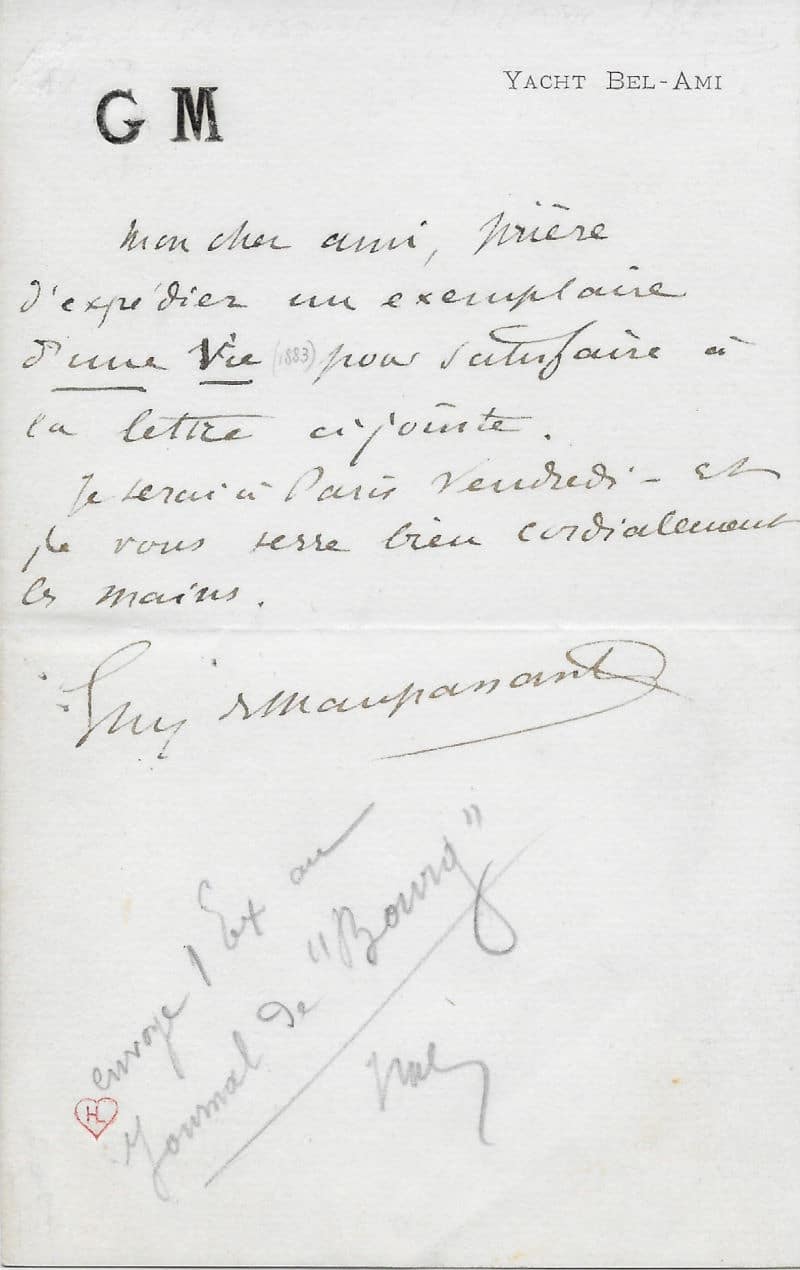 G M
YACHT BEL-AMI
Mon cher ami, prière
d'expédier un exemplaire
d'une Vie (1883) pour satisfaire à
la lettre ci jointe.
Je serai à Paris Vendredi - et
je vous serre bien cordialement
les mains.
Guy de Maupassant
envoyé 1 Ex au
Journal de "Bourg"
HL